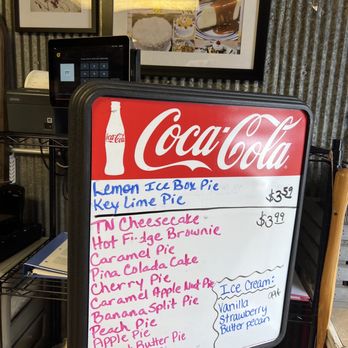 Coca-Cola
Coca-Cola
Lemon Ice Box Pie
Key Lime Pie
$3.59
TN Cheesecake
$3.99
Hot Fudge Brownie
Caramel Pie
Pina Colada Cake
Cherry Pie
Caramel Apple Nut Pie
Banana Split Pie
Peach Pie
Apple Pie
Butter Pie
Ice Cream:
Vanilla
Strawberry
Butter pecan